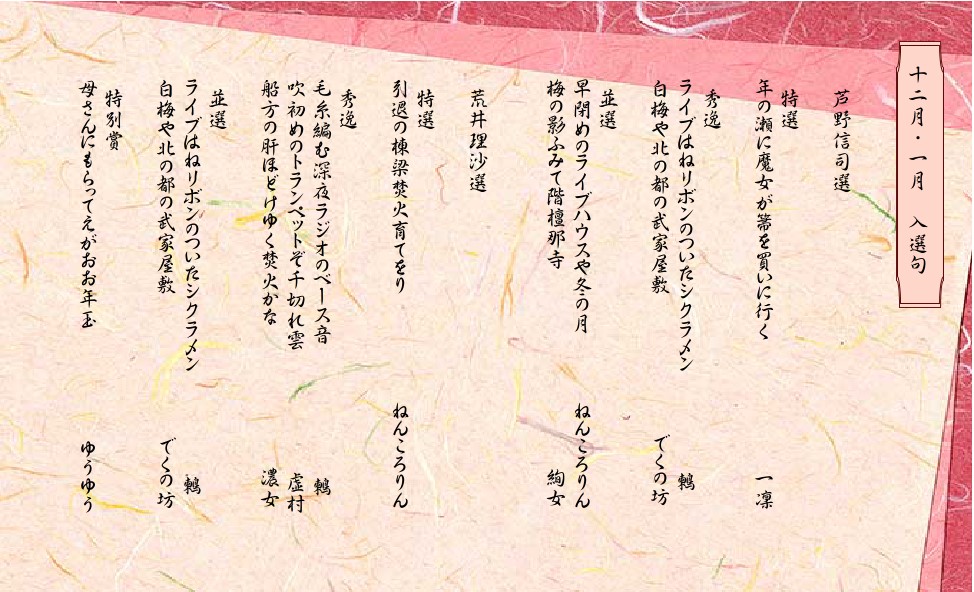 十二月・一月　入選句
芦野信司選
特選
年の瀬に魔女が箒を買いに行く　一凜
秀逸
ライブはねリボンのついたシクラメン　鶫
白梅や北の都の武家屋敷　でくの坊
並選
早閉めのライブハウスや冬の月　ねんころりん
梅の影ふみて階檀那寺　絢女
荒井理沙選
特選
引退の棟梁焚火育てをり　ねんころりん
秀逸
毛糸編む深夜ラジオのベース音　鶫
吹初めのトランペットぞ千切れ雲　虚村
船方の肝ほどけゆく焚火かな　濃女
並選
ライブはねリボンのついたシクラメン　鶫
白梅や北の都の武家屋敷　でくの坊
特別賞
母さんにもらってえがおお年玉　ゆうゆう